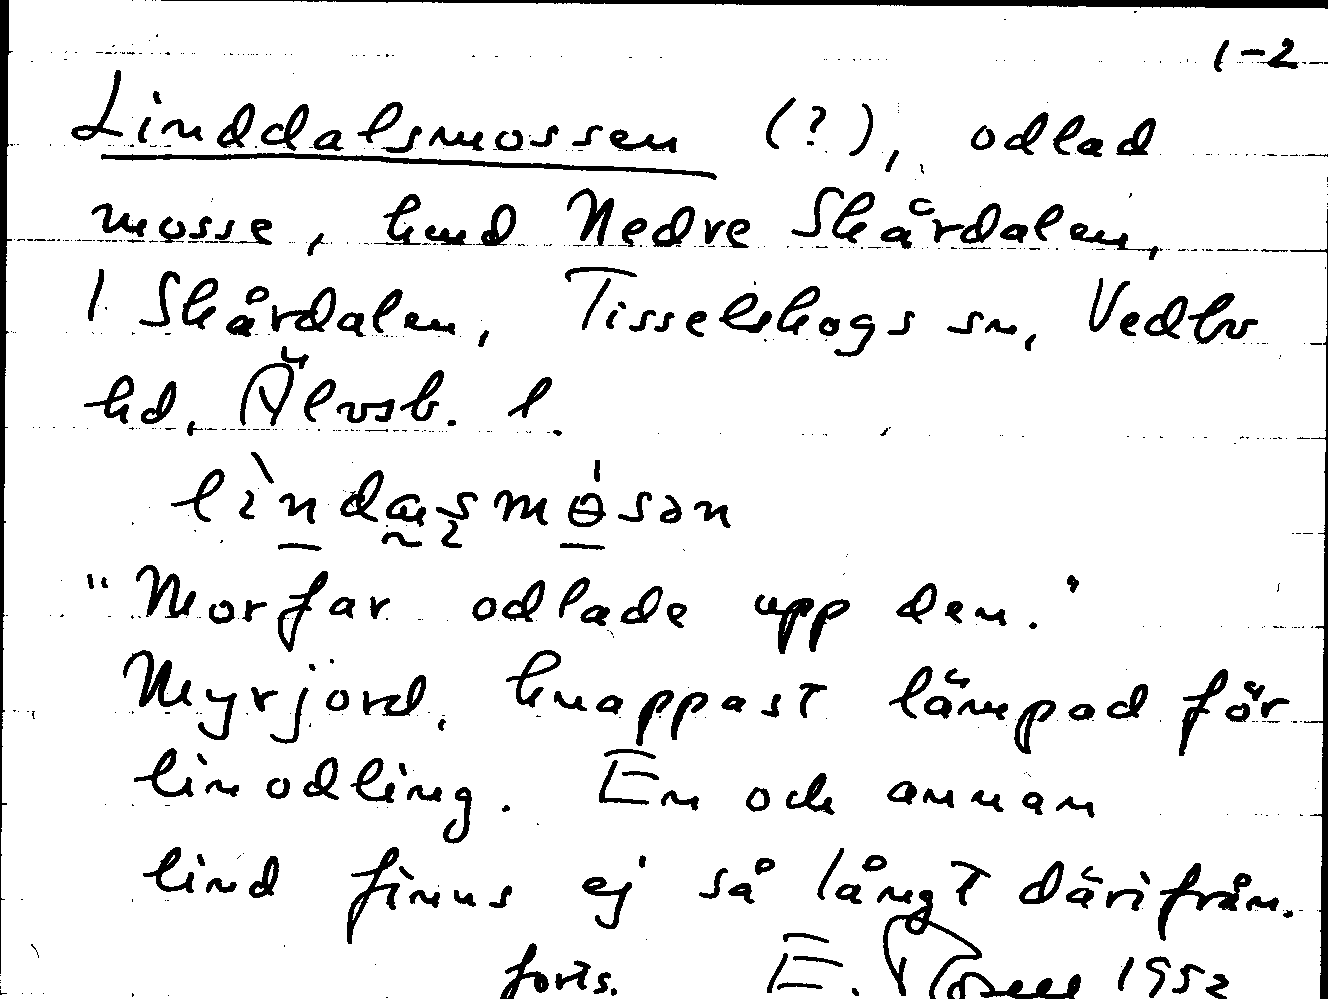 1-2
Linddalsmossen (?), odlad
mosse, hmd Nedre Skårdalen,
1 Skårdalen, Tisselskogs sn, Vedbo
hd, Älvsb. l.
lìndasmósən
"Morfar odlade upp den."
Myrjord, knappast lämpad för
linodling. En och annan
lind finns ej så långt därifrån.
forts. E. 1952